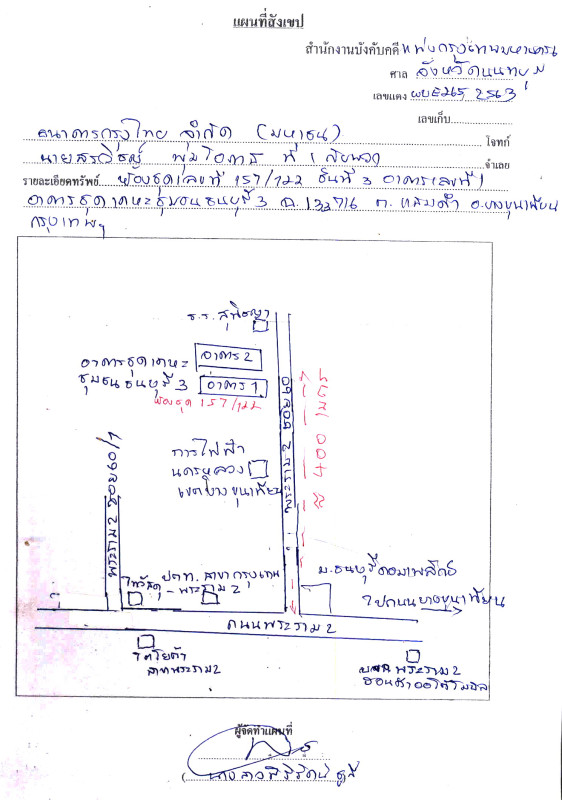 แผนที่สังเขป
สำนักงานบังคับคดี แพ่งกรุงเทพมหานคร
ศาล จังหวัดนนทบุรี
เลขแดง ผบE 2563
เลขเก็บ
ธนาคารกรุงไทย จำกัด (มหาชน) โจทก์
นายสรวิชญ์ ที่ 1 จำเลย
รายละเอียดทรัพย์ ห้องชุดเลขที่ 157/122 ชั้นที่ 3 อาคารเลขที่ 1
อาคารชุดเคหะชุมชนธนบุรี 3 ต. แสมดำ อ.บางขุนเทียน
กรุงเทพฯ
ร.ร. สุพิชญา
อาคารชุดเคหะ
ชุมชนธนบุรี 3
อาคาร 2
อาคาร 1
ห้องชุด 157/122
พระราม 2 ซอย 60
400
การไฟฟ้า
นครหลวง
เขตบางขุนเทียน
พระราม 2 ซอย 60/1
ไทวัสดุ
ปตท. สาขากรุงเทพ
- พระราม 2
ม.ธนบุรีคอมเพล็กซ์
ไปถนนบางขุนเทียน
ถนนพระราม 2
โตโยต้า
สาขาพระราม 2
พระราม 2
ผู้จัดทำแผนที่